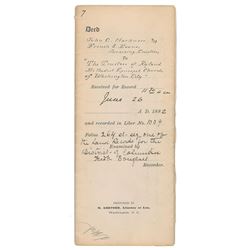 7
Deed
John C. Harkness, By
French S. Evans,
Surviving Trustee
To
"The Trustees of Ryland
Methodist Episcopal Church
of Washington City"
Received for Record
June 26
A. D. 1882
and recorded in Liber No. 1004
Folios 264 et seq. one of
the Land Records for the
District of Columbia
Examined by
Recorder.
Washington, D. C.